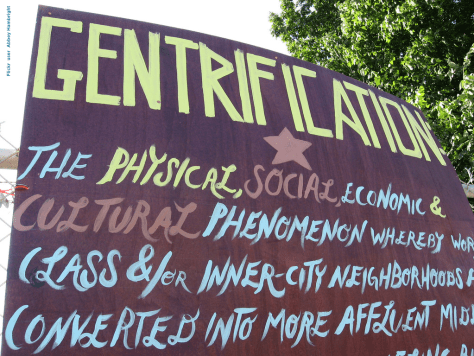 Flickr user Abbey Hambright
GENTRIFICATION
THE PHYSICAL, SOCIAL, ECONOMIC &
CULTURAL PHENOMENON WHEREBY WOR
CLASS &/or INNER-CITY NEIGHBORHOODS A
CONVERTED INTO MORE AFFLUENT MID